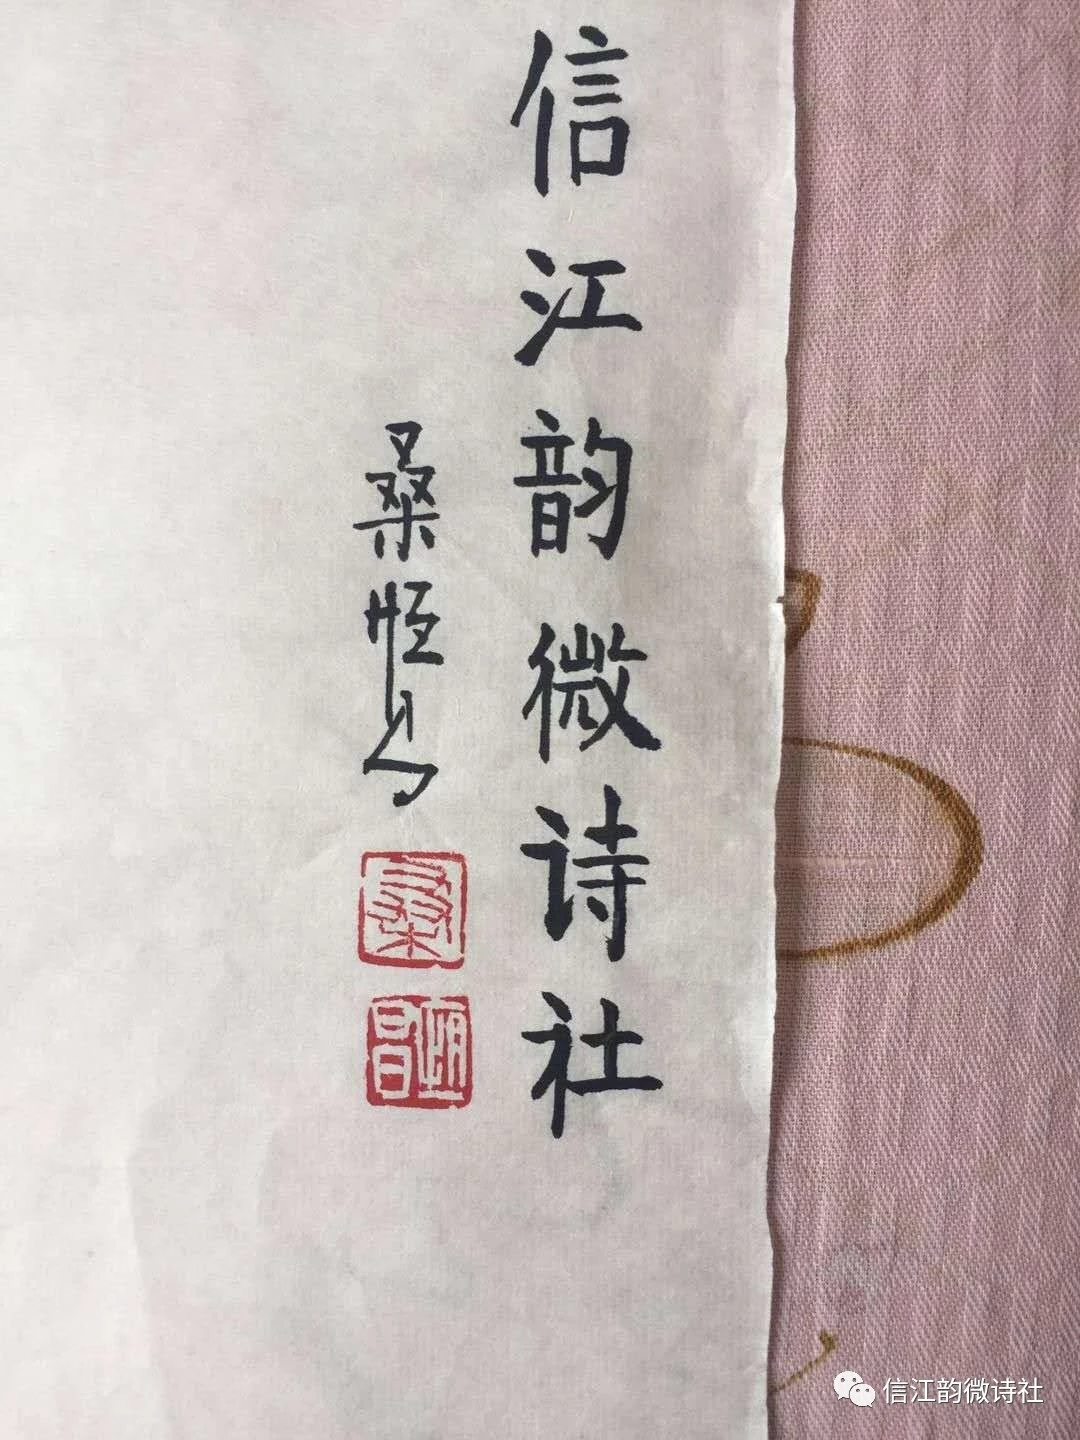 信江韵微诗社
桑恒昌
桑
恒昌
信江韵微诗社